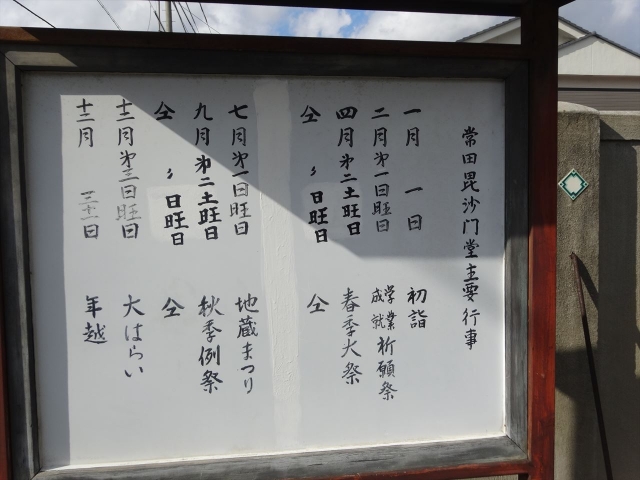 常田毘沙門堂主要行事
一月 一日 初詣
二月第一日旺日 学業成就祈願祭
四月第二土旺日 春季大祭
仝 〃 日旺日 仝
七月第一日旺日 地蔵まつり
九月第二土旺日 秋季例祭
仝 〃 日旺日 仝
十二月第三日旺日 大はらい
十二月 三十一日 年越